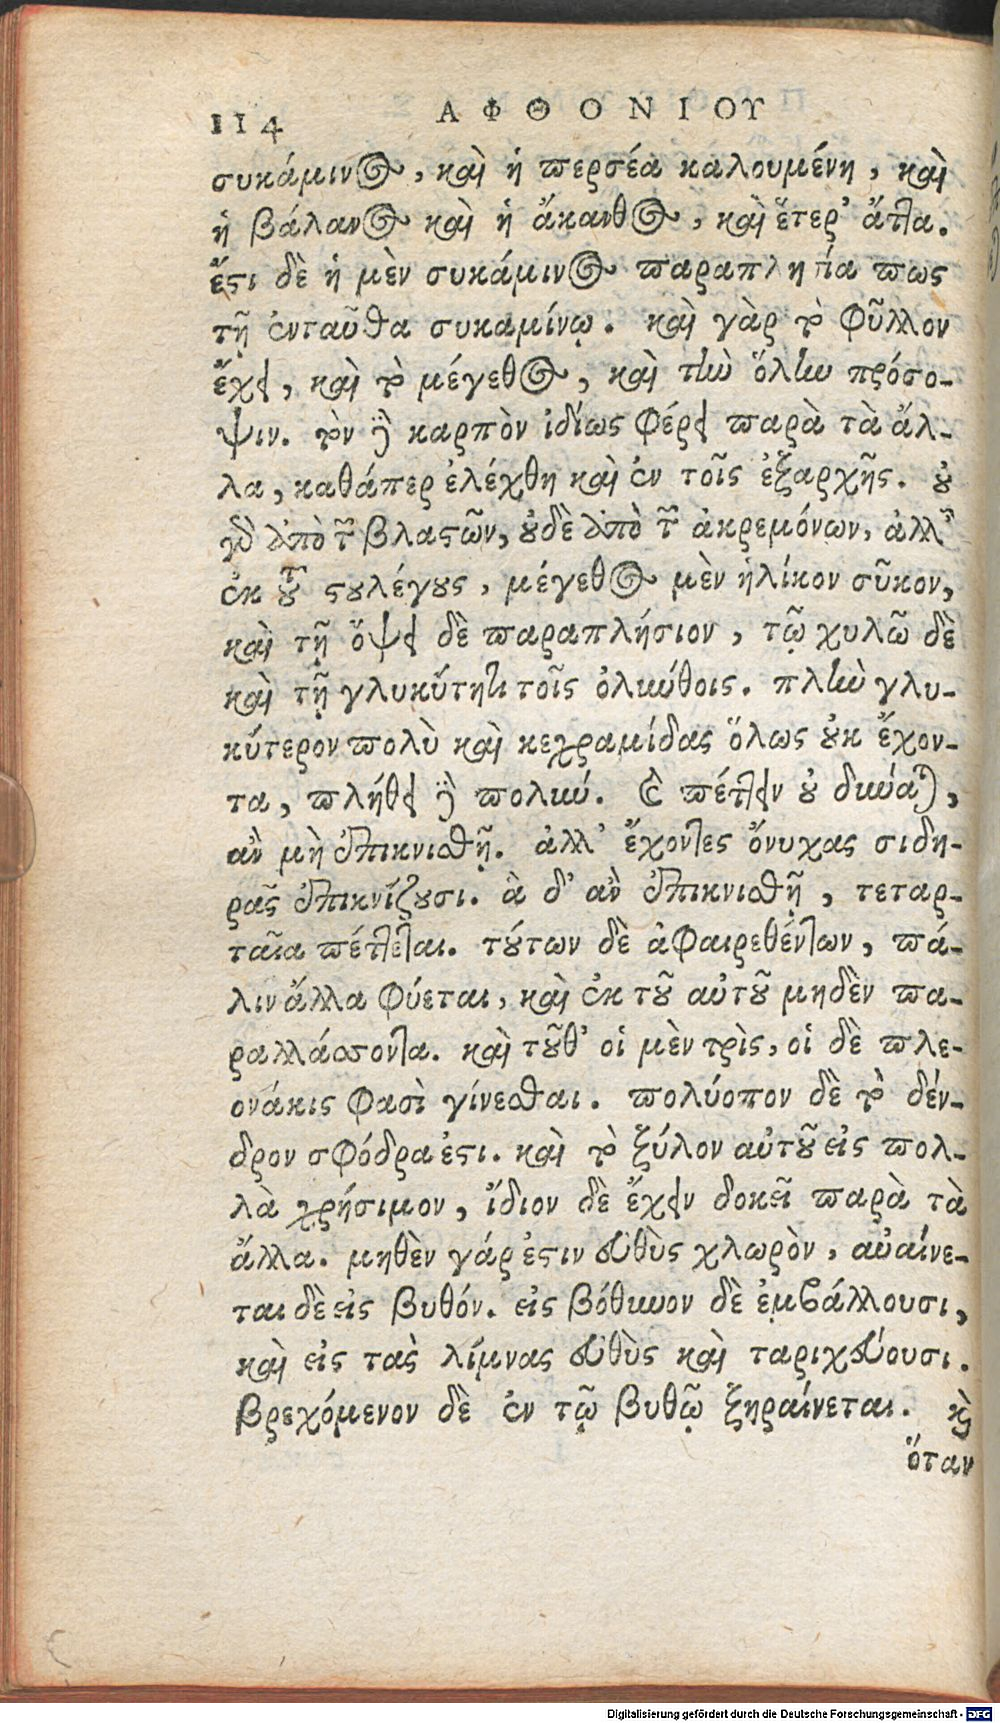 114 ΑΦΘΟΝΙΟΥ
συκάμινος, καὶ ἡ περσέα καλουμένη, καὶ
ἡ βάλανος καὶ ἡ ἄκανθος, καὶ ἕτερ' ἄττα.
ἔστι δὲ ἡ μὲν συκάμινος παραπλησία πως
τῇ ἐνταῦθα συκαμίνῳ. καὶ γὰρ τὸ φῦλλον
ἔχει, καὶ τὸ μέγεθος, καὶ τὴν ὅλην πρόσο-
ψιν. τὸν δὲ καρπὸν ἰδίως φέρει παρὰ τὰ ἄλ-
λα, καθάπερ ἐλέχθη καὶ ἐν τοῖς ἐξαρχῆς. οὐ
γὰρ ἀπὸ τῶν βλαστῶν, οὐδὲ ἀπὸ τῶν ἀκρεμόνων, ἀλλ'
ἐκ τοῦ στελέχους, μέγεθος μὲν ἡλίκον σῦκον,
καὶ τῇ ὄψει δὲ παραπλήσιον, τῷ χυλῷ δὲ
καὶ τῇ γλυκύτητι τοῖς ὀλυνθοις. πλὴν γλυ-
κύτερον πολὺ καὶ κεχραμίδας ὅλως οὐκ ἔχον-
τα, πλήθει δὲ πολύ. καὶ πέττειν οὐ δύναται,
ἂν μὴ ἐπικνισθῇ. ἀλλ' ἔχοντες ὄνυχας σιδη-
ρᾶς ἐπικνίζουσι. ἃ δ' ἂν ἐπικνισθῇ, τεταρ-
ταῖα πέττεται. τούτων δὲ ἀφαιρεθέντων, πά-
λιν ἄλλα φύεται, καὶ ἐκ τοῦ αὐτοῦ μηδὲν πα-
ραλλάσσοντα. καὶ τοῦθ' οἱ μὲν τρὶς, οἱ δὲ πλε-
ονάκις φασὶ γίνεσθαι. πολύοπον δὲ τὸ δέν-
δρον σφόδρα ἐστι. καὶ τὸ ξύλον αὐτοῦ εἰς πολ-
λὰ χρήσιμον, ἴδιον δὲ ἔχειν δοκεῖ παρὰ τὰ
ἄλλα. μηθὲν γάρ ἐστιν εὐθὺς χλωρὸν, αὐαίνε-
ται δὲ εἰς βυθόν. εἰς βόθυνον δὲ ἐμβάλλουσι,
καὶ εἰς τὰς λίμνας εὐθὺς καὶ ταριχεύουσι.
βρεχόμενον δὲ ἐν τῷ βυθῷ ξηραίνεται. καὶ
ὅταν
Digitalisierung gefördert durch die Deutsche Forschungsgemeinschaft - DFG